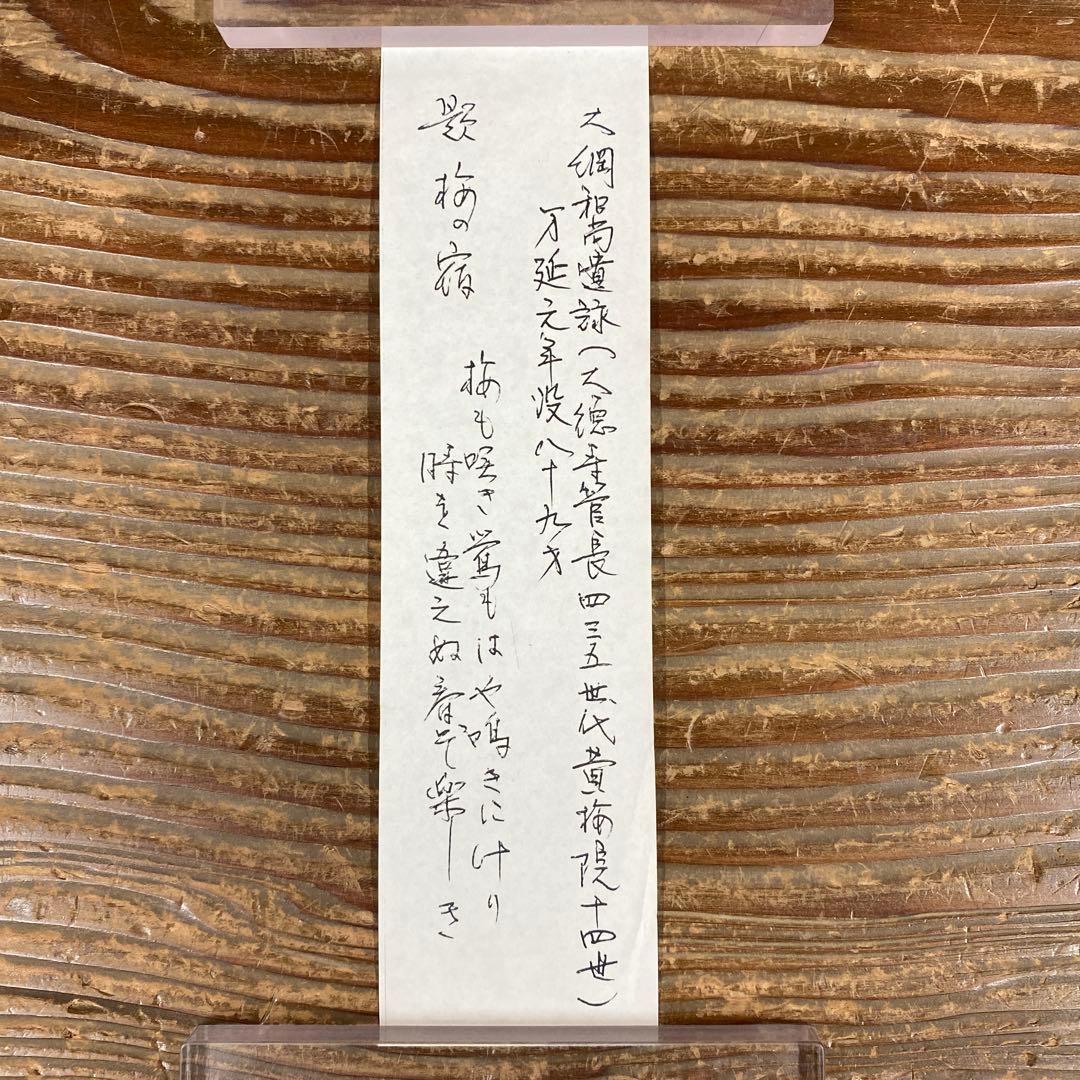 大綱和尚遺詠(大徳寺管長四三五世代黄梅院十四世)
万延元年没八十九才
題 梅の宿
梅も咲き鶯もはや鳴きに汁り
時を違えぬ春ぞ楽しき